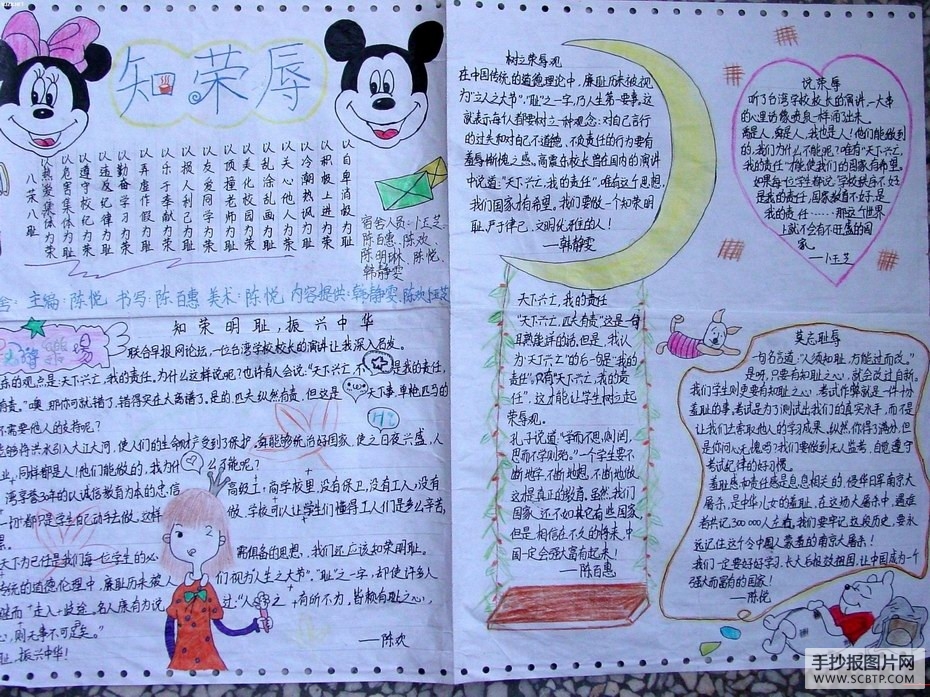 知荣辱
以热爱集体为荣
以危害集体为耻
以遵守校纪为荣
以违反校纪为耻
以勤奋学习为荣
以弄虚作假为耻
以乐于奉献为荣
以损人利己为耻
以友爱同学为荣
以顶撞老师为耻
以美化校园为荣
以乱涂乱画为耻
以关心他人为荣
以冷潮热讽为耻
以积极上进为荣
以自单消极为耻
八荣八耻
宿舍人员:卜玉芝、
陈百惠、陈欢、
陈明琳、陈悦、
韩静雯
主编:陈悦 书写:陈百惠 美术:陈悦 内容提供:韩静雯、陈欢、卜玉芝
知荣明耻,振兴中华
联合早报网论坛,一位台湾学校校长的演讲让我深入名发。
东的观点是:天下兴亡,我的责任。为什么这样说呢?也许有人会说:"天下兴亡,不是我的责任,
有责。"噢,那你可就错了,错得实在大离错了。是的,匹夫纵然有责,但这是天下事,单枪匹马的
不需要他人的支持呢?
能够将洪水引入大江大河,使人们的生命财产受到了保护。舜能够统治好国家,使之日夜兴盛,人
业,同样都是人!他们能做的,我为什么不能呢?
湾享誉30年的以诚信教育为本的忠信高级工商学校里,没有保卫,没有工人,没有
一切都只是学生自己动手去做。这样做,学校可以让学生们懂得工人们是多么辛苦,
果。
天下为己任是我们每一位学生的必需俱备的思想,我们还应该知荣明耻。
传统的道德伦理中,廉耻历来被人们视为"人生之大节"。"耻"之一字,却使许多人
继而"走入"歧途。名人康有为说过:"人之有所不为,皆赖有耻之心,
心,则无事不可足矣。"
耻,振兴中华!
——陈欢
树立荣辱观
在中国传统的道德理论中,廉耻历来被视
为"立人之大节"。"耻"之一字,乃人生第一要事。这
就表示每人都要树立一种观念:对自己言行
的过失和对自己不道德、不负责任的行为要有
羞辱惭愧之感。高震东校长曾在国内的演讲
中说道:"天下兴亡,我的责任",唯有这个思想,
我们国家才有希望。我们要做一个知荣明
耻、严于律己、文明优雅的人!
——韩静雯
天下兴亡,我的责任
"天下兴亡,匹夫有责"这是一句
耳熟能详的话,但是,我认
为"天下兴亡"的后一句是"我的
责任",只有"天下兴亡,我的责
任",这才能让学生树立起
荣辱观。
孔子说道:"学而不思,则罔,
思而不学则殆。"一个学生要不
断地学,不断地想,不断地做,
这才是真正的教育。虽然,我们
国家,还不如其它有些国家,
但是,相信在不久的将来,中
国一定会强富有起来!
——陈百惠
说荣辱
听了台湾学校校长的演讲,一大串
的心里访像喷泉一样涌了出来。
禹是人,舜是人,我也是人!他们能做到
的,我们为什么不能呢?唯有"天下兴亡,
我的责任"才能使我们的国家有希望。
如果每一位学生都说:学校秩序不好,
是我的责任,国家教育不好,是
我的责任……那这个世界
上就不会有不旺盛的国
家。
——卜玉芝
莫忘耻辱
一句名言道:"人须知耻,方能过而改。"
是呀,只要有知耻之心,就会改过自新。
我们学生则更要有知耻之心,考试作弊就是一件十分
羞耻的事,考试是为了测试出我们的真实水平,而不是
让我们去索取他人的学习成果。纵然,你得了满分,但
是你问心无愧吗?我们要做到无人监考,自觉遵守
考试纪律的好习惯。
羞耻感和责任感是息息相关的,侵华日军南京大
屠杀,是中华儿女的羞耻,在这场大屠杀中,遇难
者共记300000人左右,我们要牢记这段历史,要永
远记住这个令中国人蒙羞的南京大屠杀!
我们一定要好好学习,长大后报效祖国,让中国成为一个
强大而富有的国家!
——陈悦
手抄报图片网
WWW.SCBTP.COM